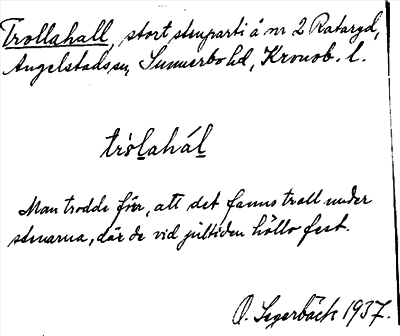 Trollahall, stort stenparti å nr 2 Rataryd,
Angelstads sn, Sunnerbo hd, Kronob. l.
tròlahál
Man trodde förr, att det fanns troll under
stenarna, där de vid jultiden höllo fest.
O. Segerbäck 1937.